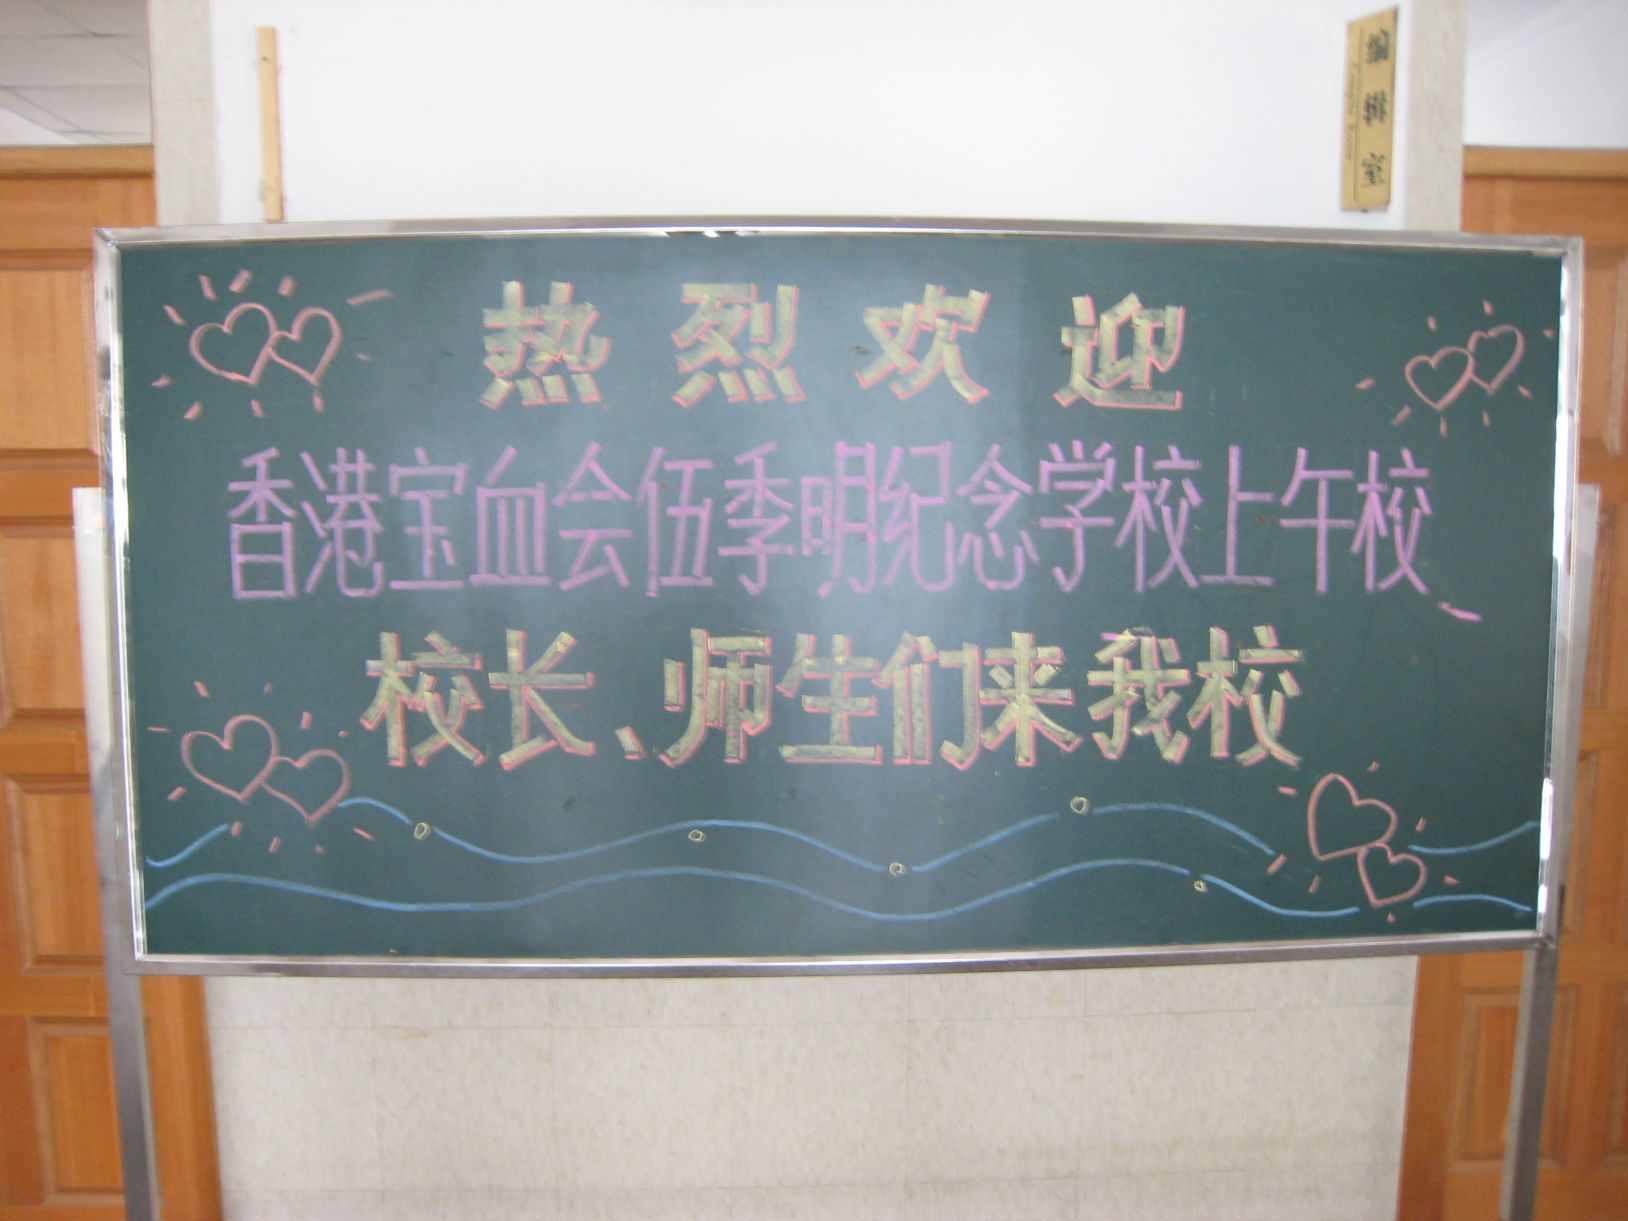 热烈欢迎
香港宝血会伍季明纪念学校上午校
校长、师生们来我校